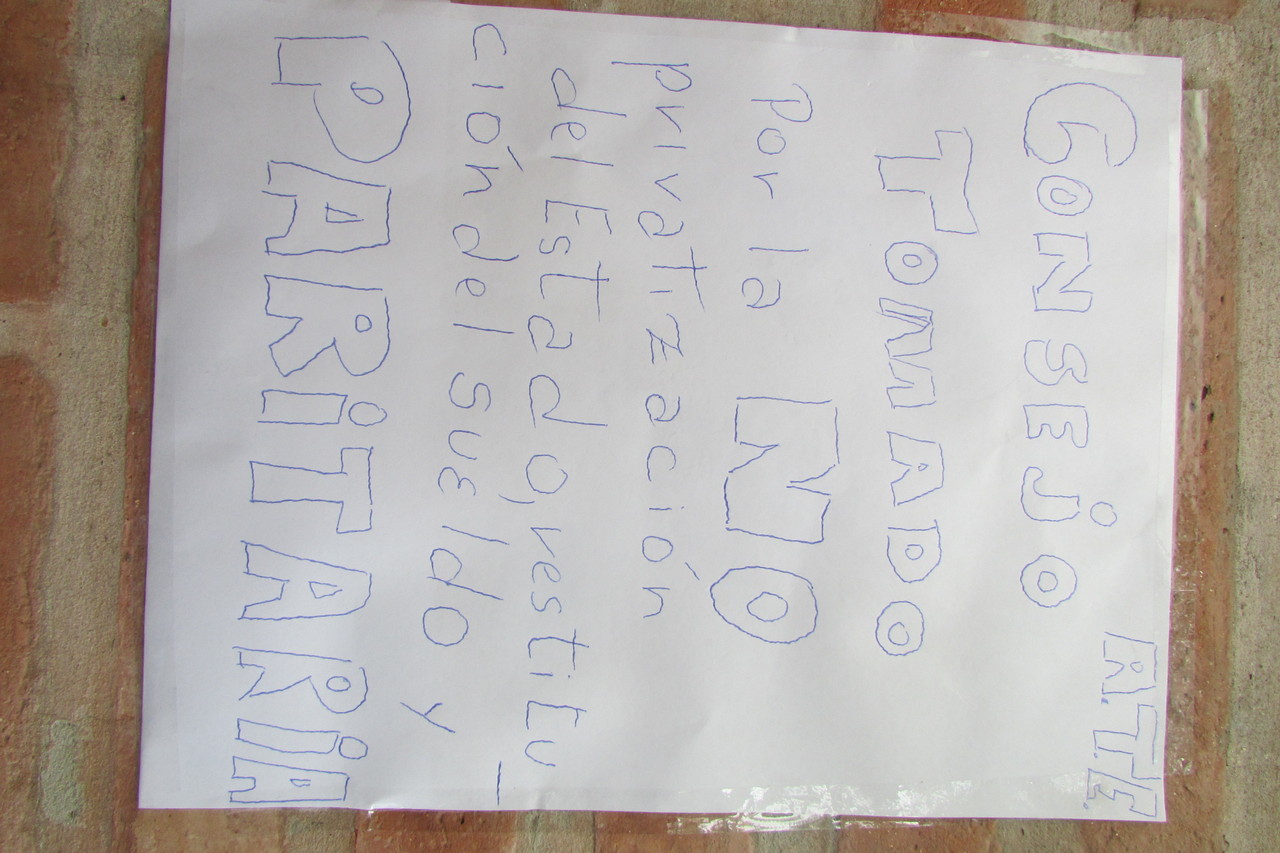 A.T.E.
CONSEJO
TOMADO
por la NO
privatización
del Estado, restitu-
ción del sueldo y
PARITARIA